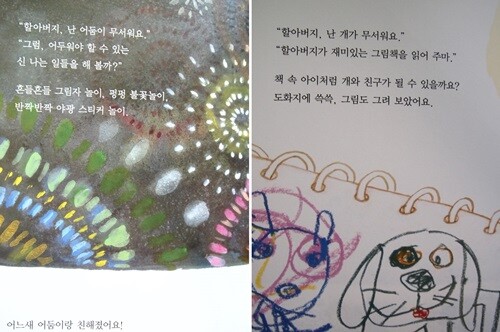 "할아버지, 난 어둠이 무서워요."
"그럼, 어두워야 할 수 있는
신 나는 일들을 해 볼까?"
흔들흔들 그림자 놀이, 펑펑 불꽃놀이,
반짝반짝 야광 스티커 놀이.
어느새 어둠이랑 친해졌어요!
"할아버지, 난 개가 무서워요."
"할아버지가 재미있는 그림책을 읽어 주마."
책 속 아이처럼 개와 친구가 될 수 있을까요?
도화지에 쓱쓱, 그림도 그려 보았어요.